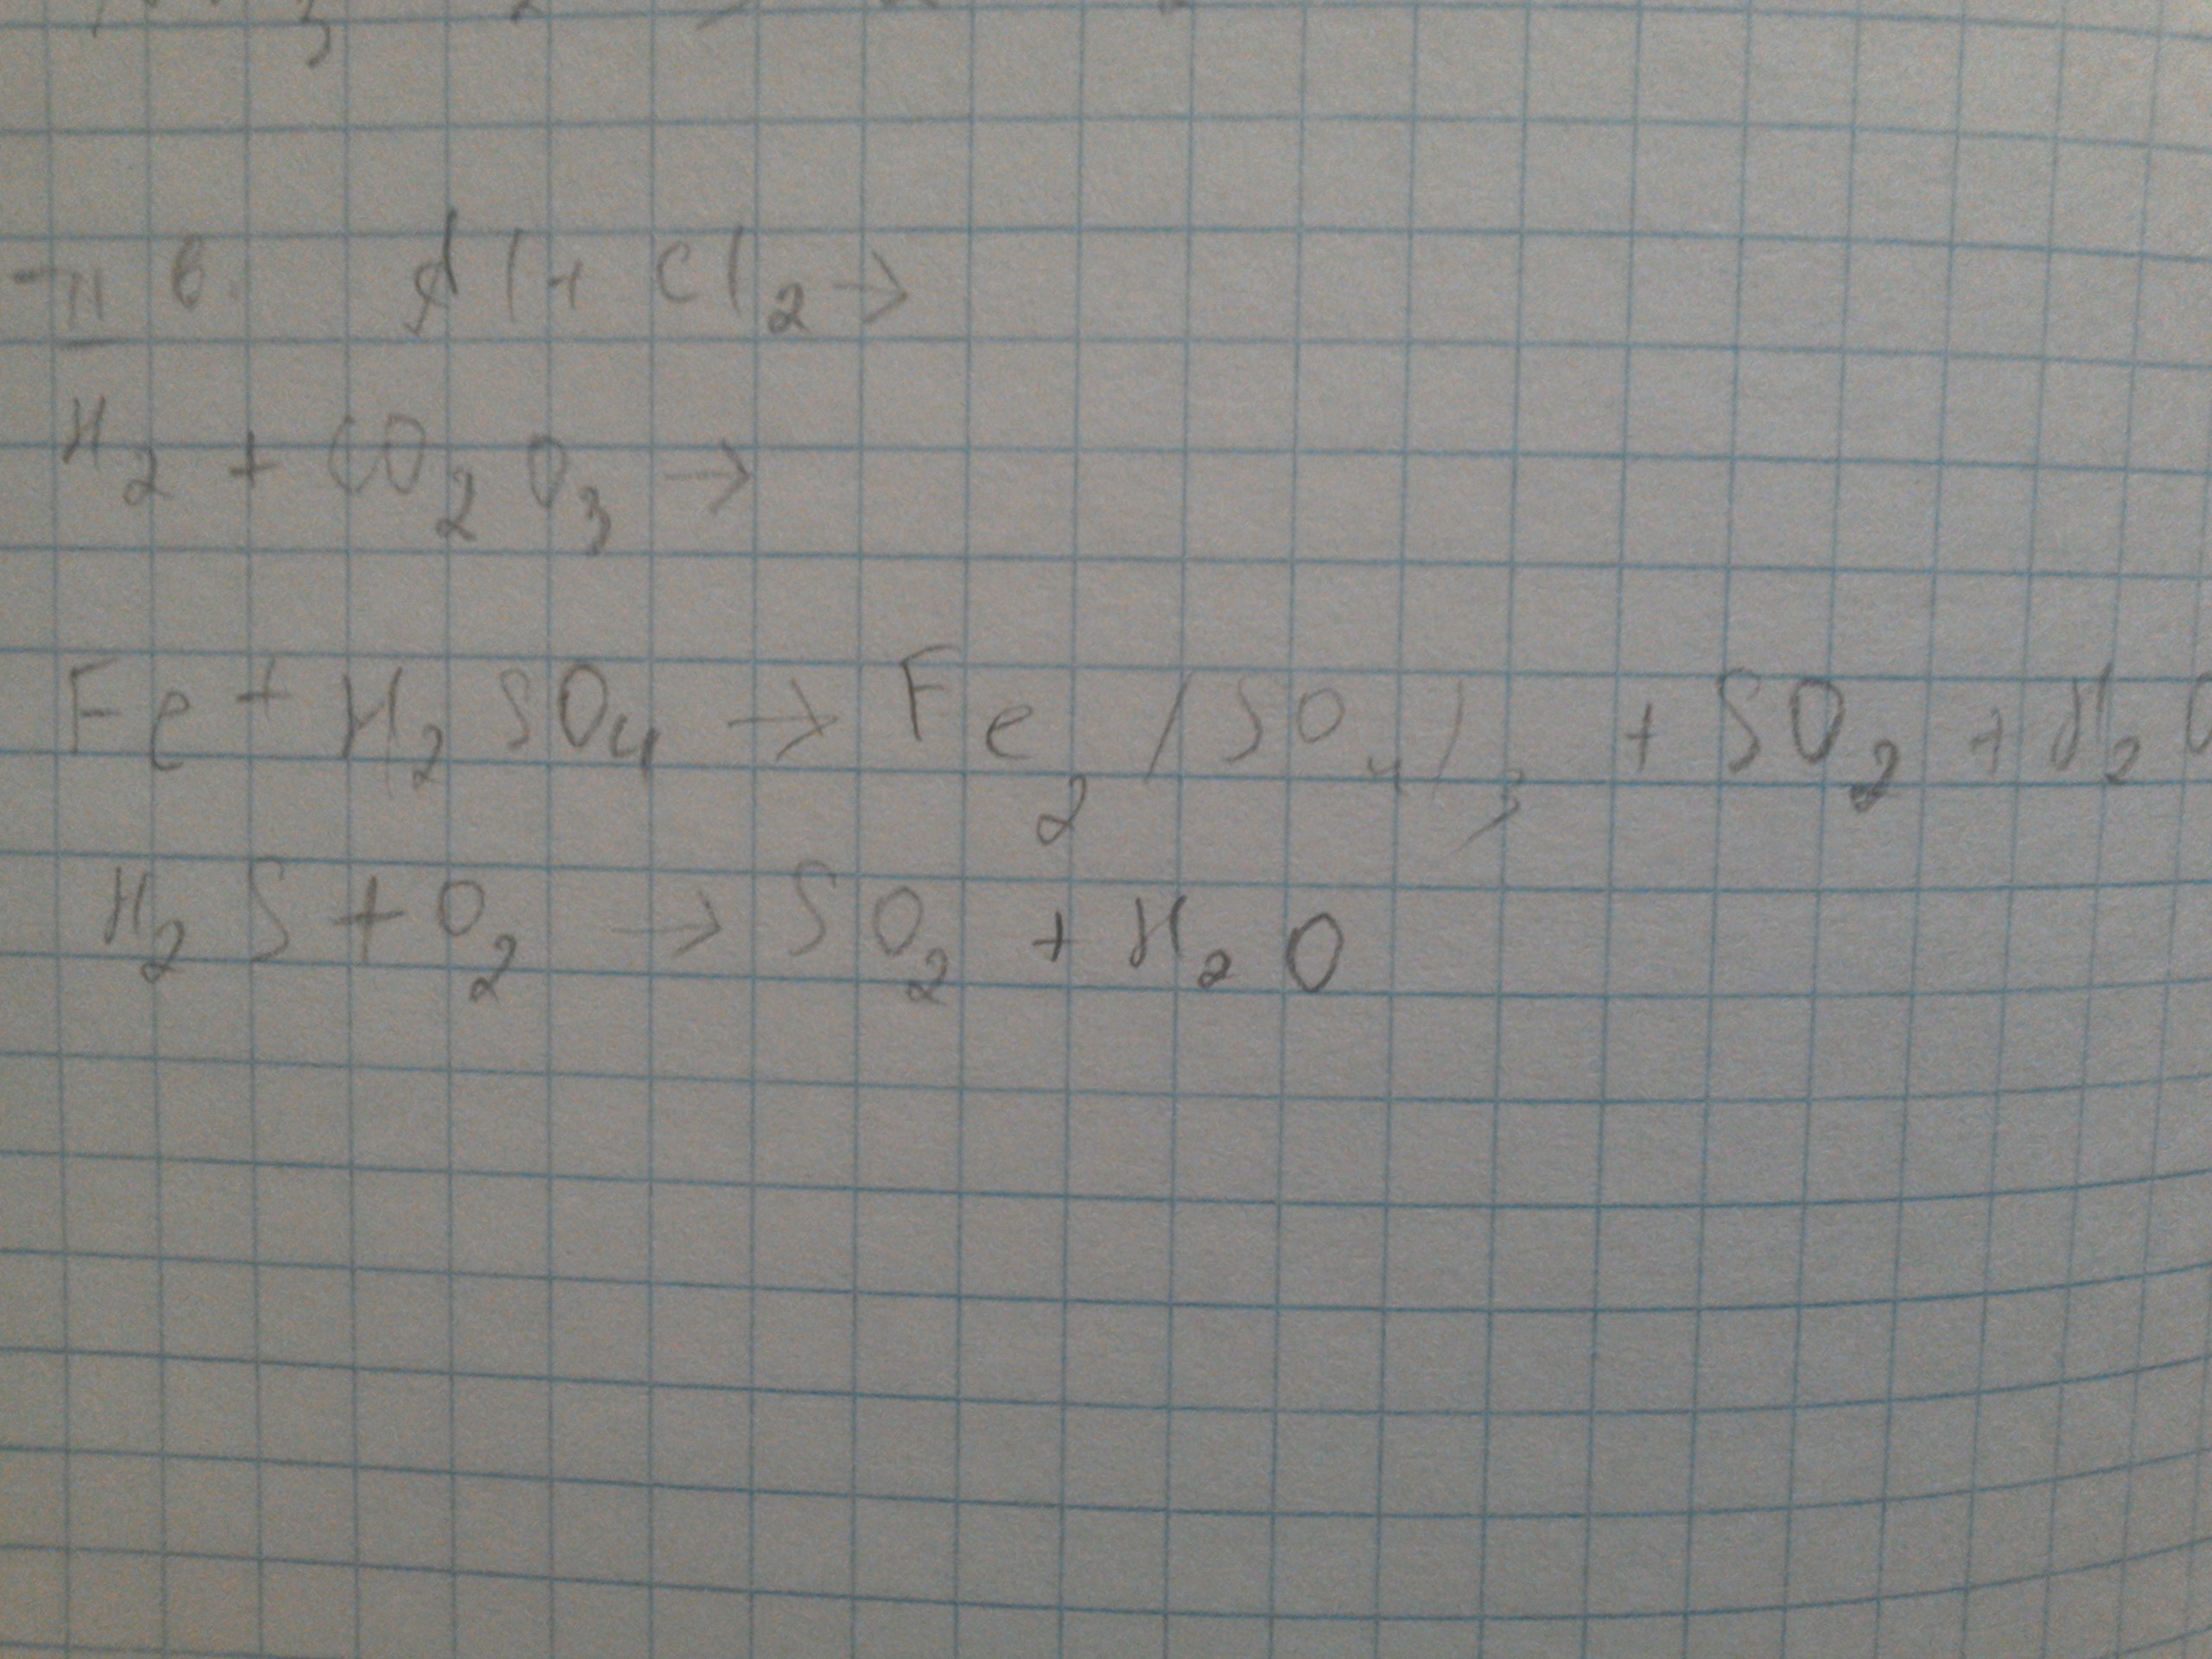 II в. Al + Cl2 →
H2 + CO2O3 →
Fe + H2SO4 → Fe2(SO4)3 + SO2 + H2O
H2S + O2 → SO2 + H2O